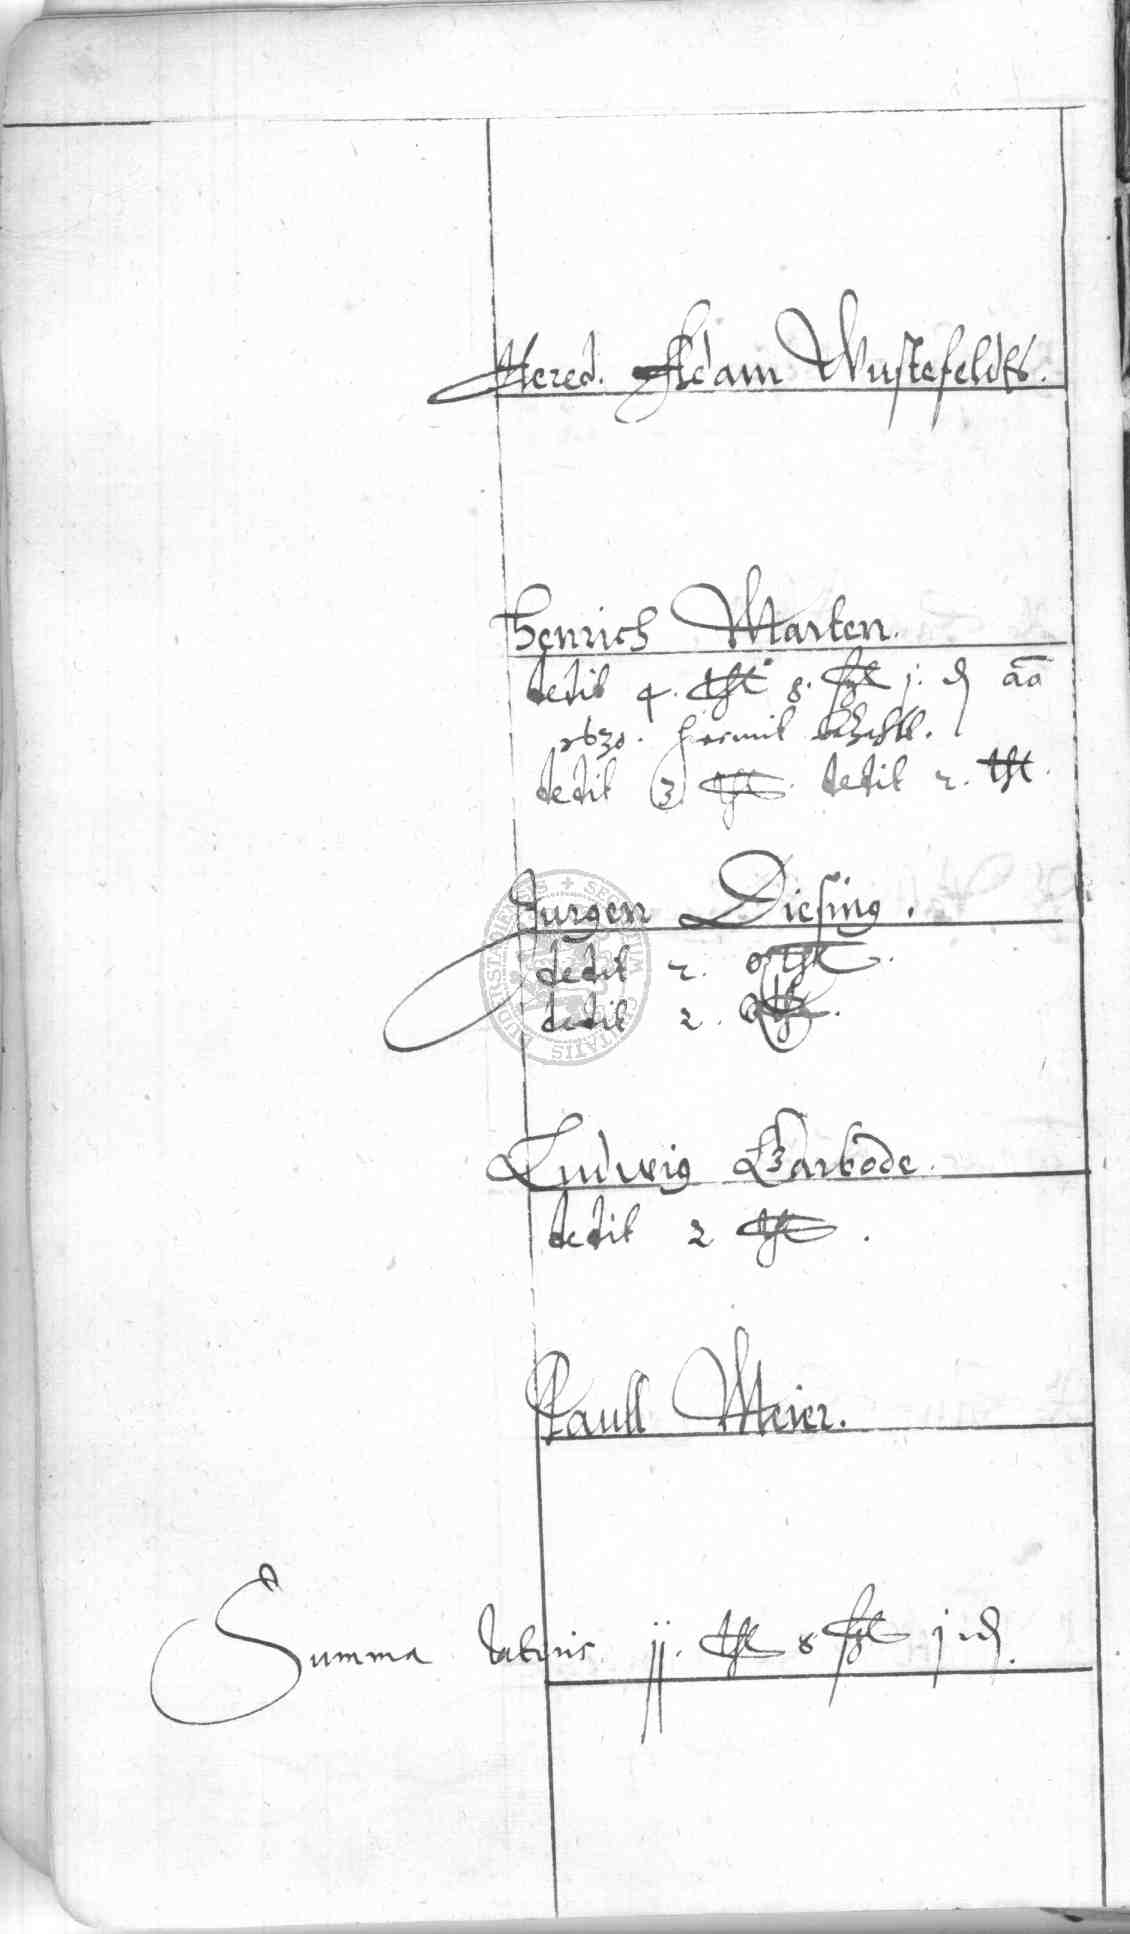 Hered. Adam Wustefeldts.
Henrich Marten.
dedit 4. thl 8. ßl j. ₰ ao
1630. hiermit bezahlt.
dedit 3 thl. dedit 2. thl.
Jurgen Diesing.
dedit 2. ortthl.
dedit 2.
Ludwig Barbode.
dedit 2 thl.
Paull Meier.
Summa lateris jj. thl 8 ßl j ₰.
SECRETUM CIVITATIS DUDERSTADIENSIS